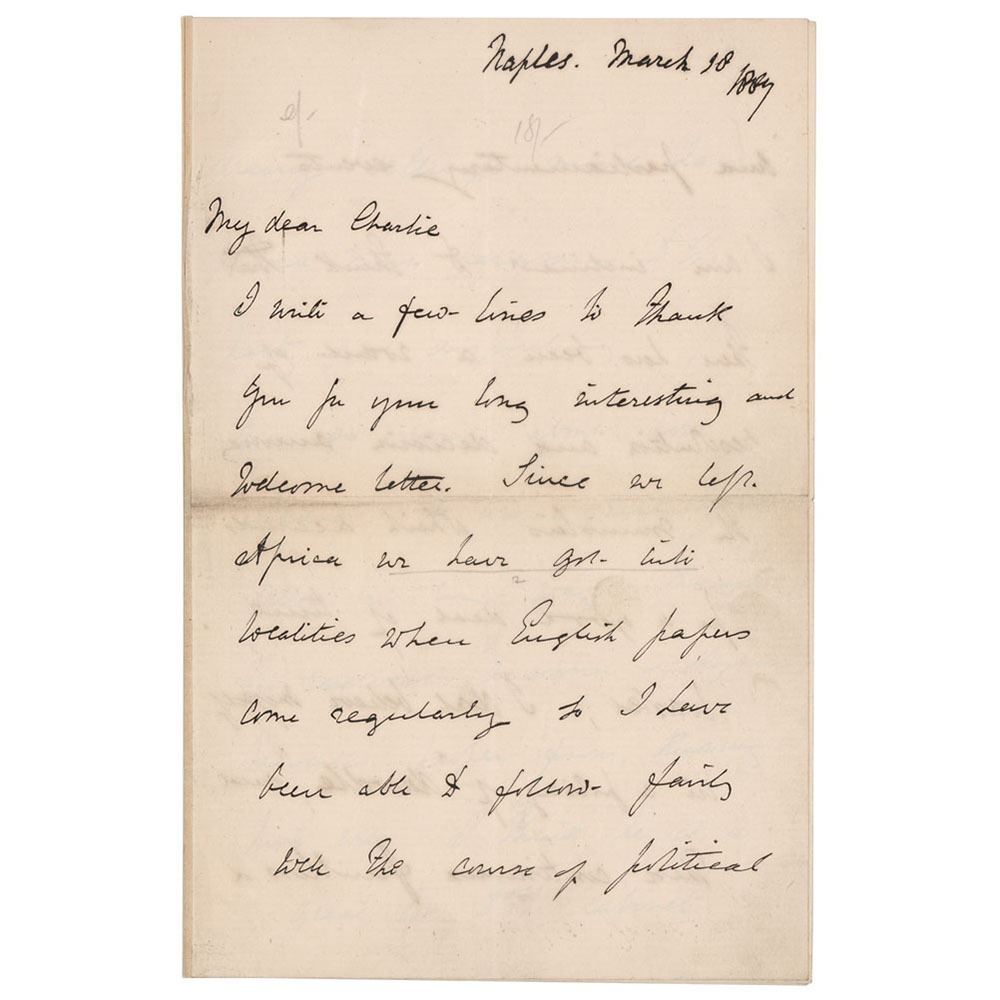 Naples. March 18
1887
18/-
My dear Charlie
I write a few lines to thank
you for your long interesting and
welcome letter. Since we left
Africa we have got into
localities when English papers
come regularly so I have
been able to follow fairly
well the course of political